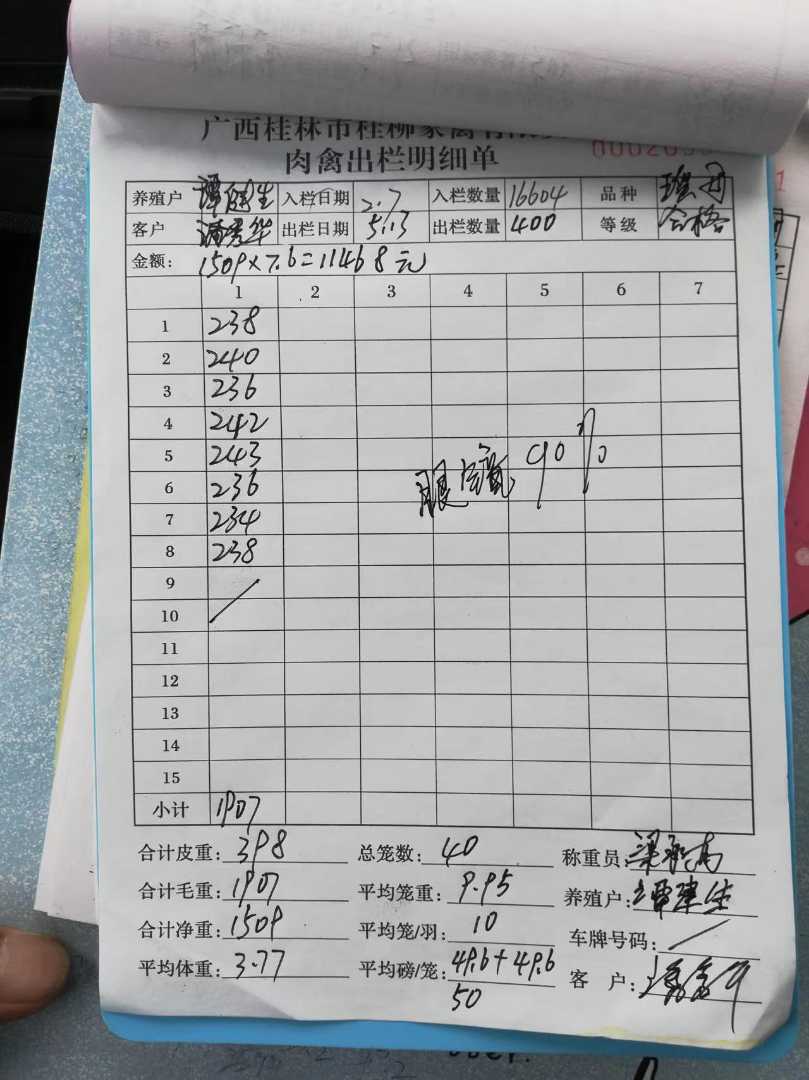 广西桂林市桂柳家禽有限
肉禽出栏明细单
养殖户 谭健生 入栏日期 2.7 入栏数量 16604 品种
客户 出栏日期 5.13 出栏数量 400 等级 合格
金额: 1509×7.6=11468元
1 2 3 4 5 6 7
1 238
2 240
3 236
4 242
5 243 眼 90%
6 236
7 234
8 238
9
10
11
12
13
14
15
小计 1907
合计皮重: 398 总笼数: 40 称重员:
合计毛重: 1907 平均笼重: 9.95 养殖户: 谭建生
合计净重: 1509 平均笼/羽: 10 车牌号码: /
平均体重: 3.77 平均磅/笼: 49.6+49.6 客 户:
50